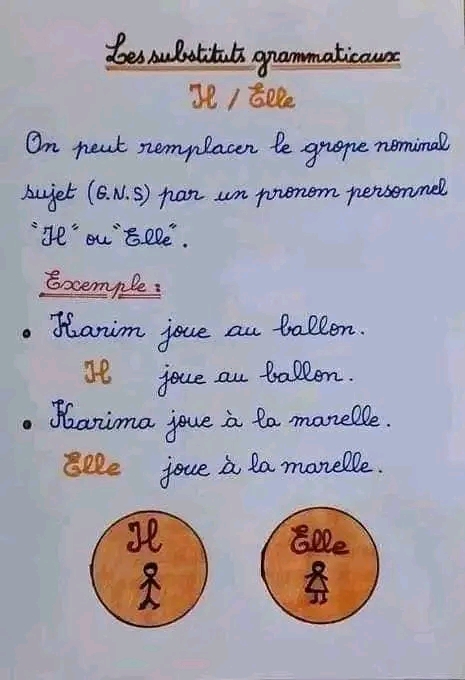 Les substituts grammaticaux
Il / Elle
On peut remplacer le grope nominal
sujet (G.N.S) par un pronom personnel
"Il" ou "Elle".
Exemple :
• Karim joue au ballon.
Il joue au ballon.
• Karima joue à la marelle.
Elle joue à la marelle.
Il Elle